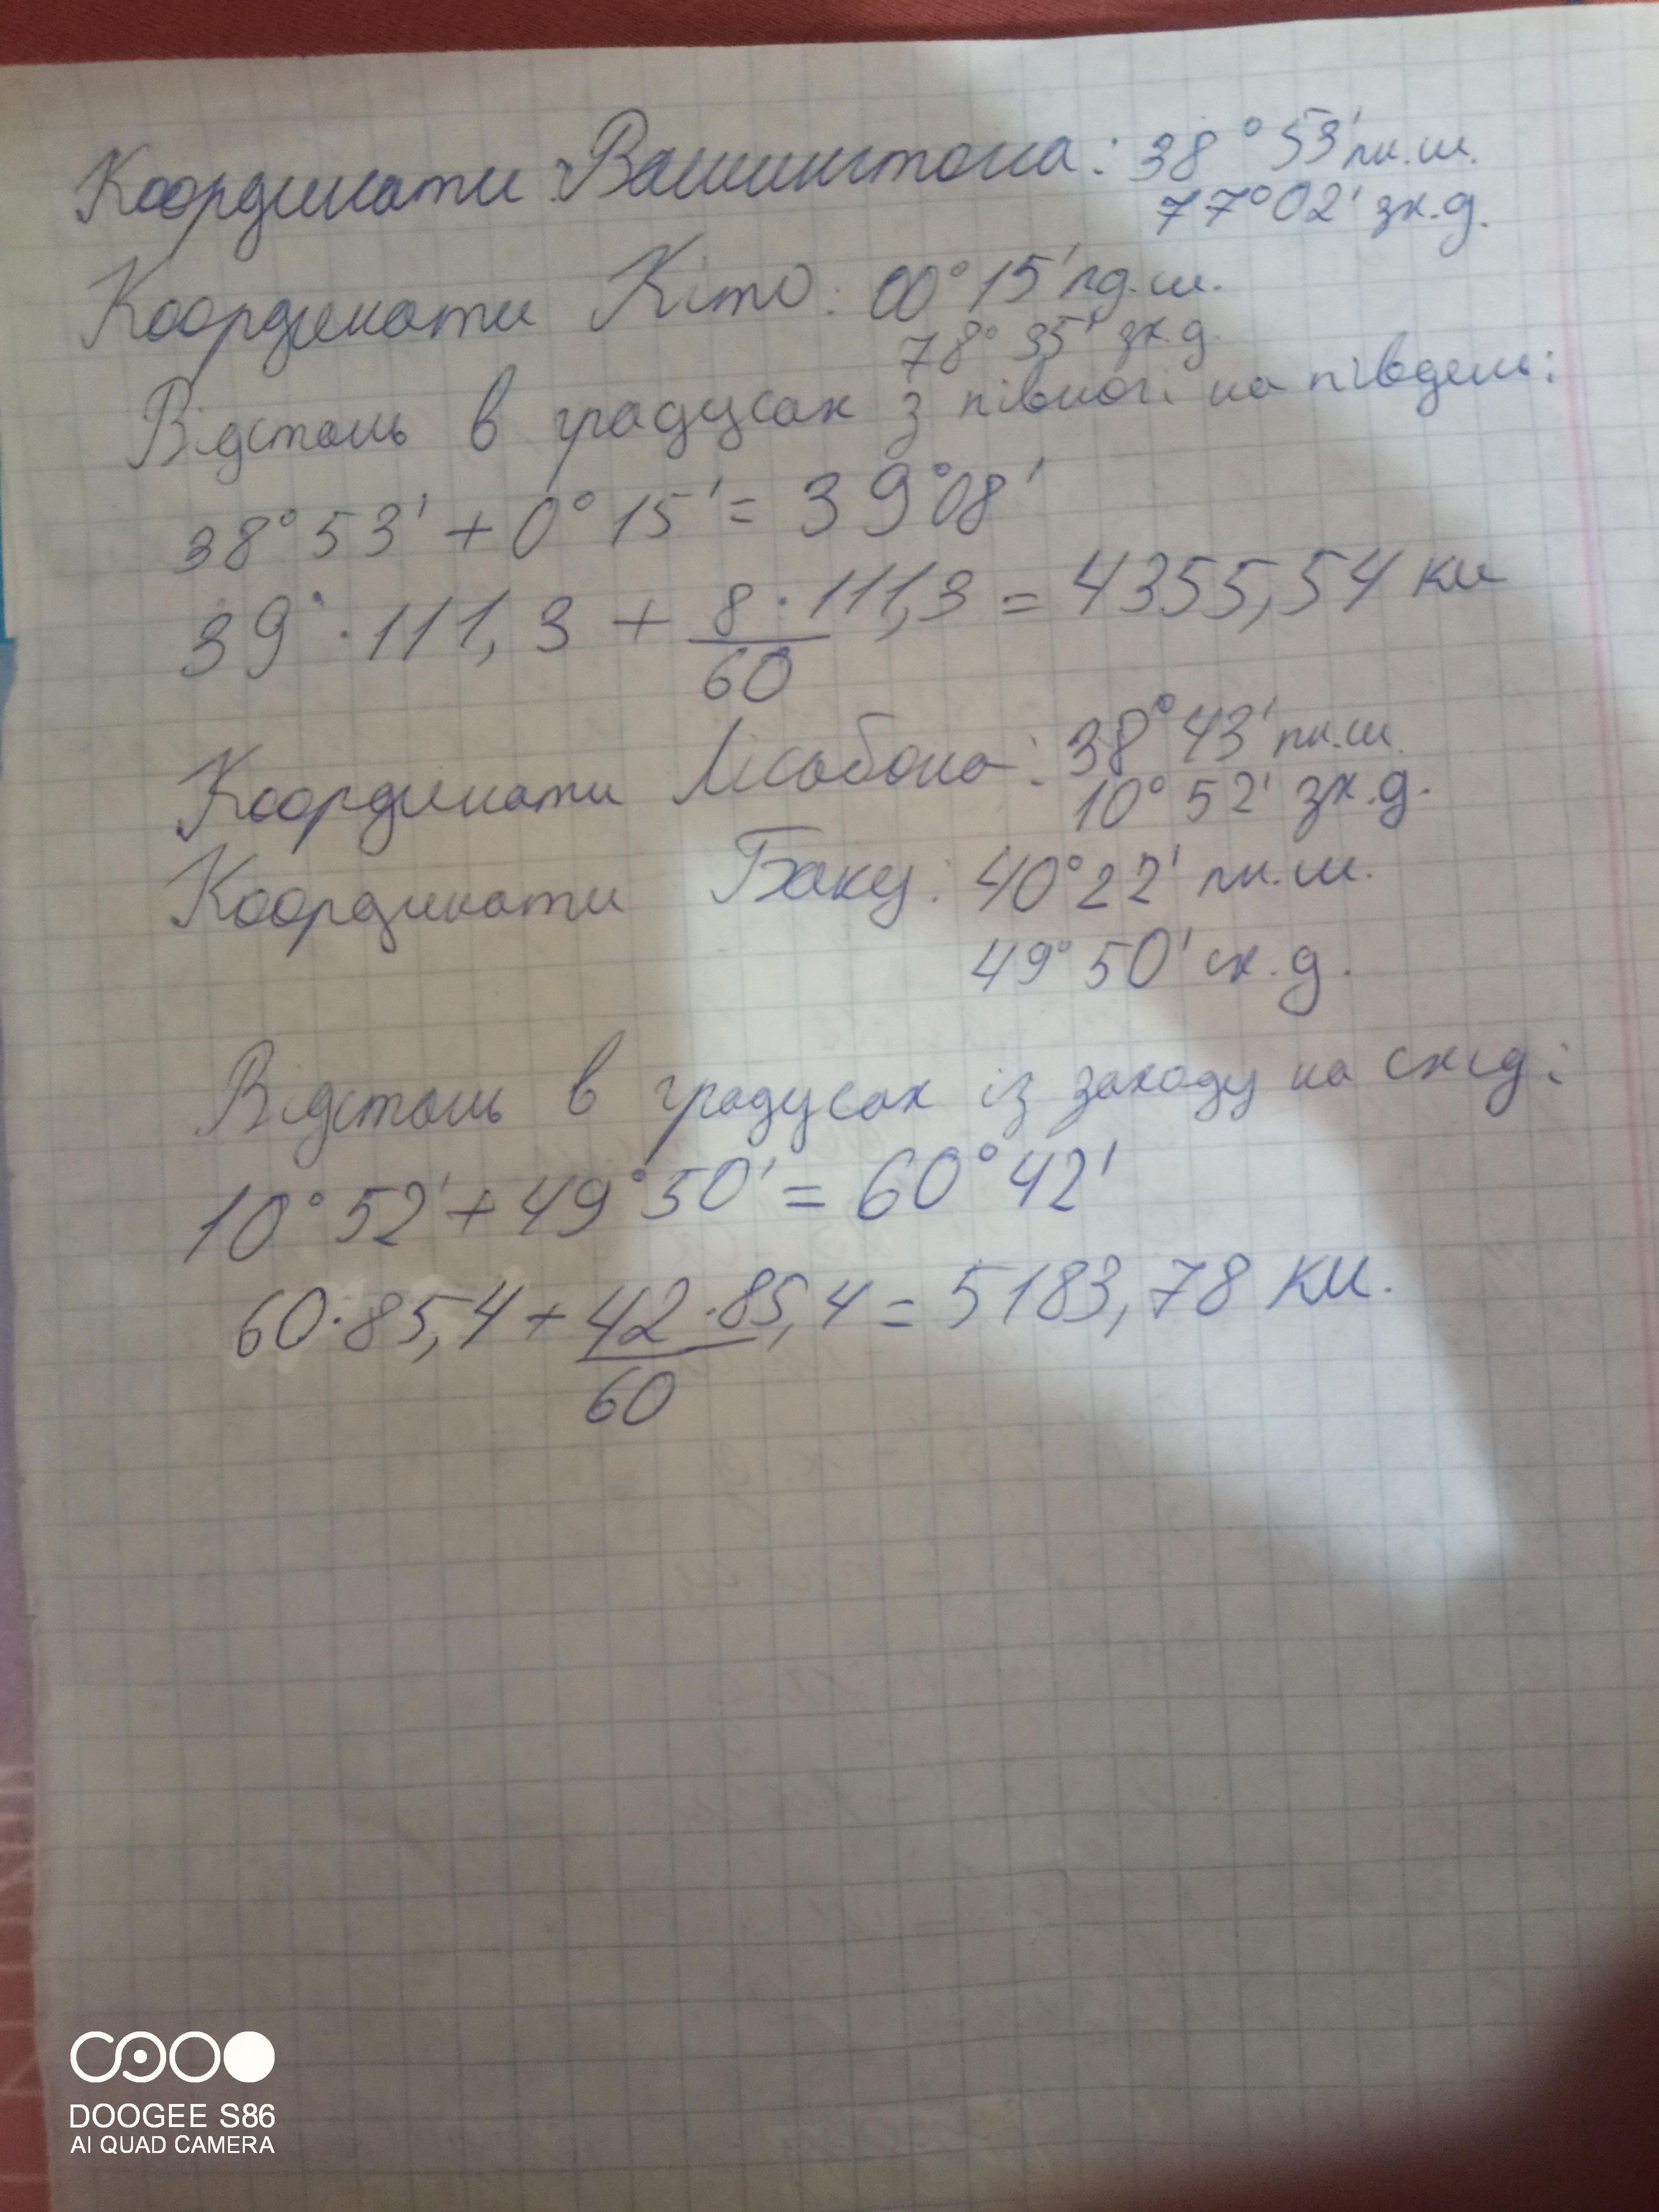 Координати Вашингтона: 38°53' пн.ш.
77°02' зх.д.
Координати Кіто: 00°15' пд.ш.
78°35' зх.д.
Відстань в градусах з півночі на південь:
38°53' + 0°15' = 39°08'
39° · 111,3 + 8 · 111,3 = 4355,54 км
60
Координати Лісабона: 38°43' пн.ш.
10°52' зх.д.
Координати Баку: 40°22' пн.ш.
49°50' сх.д.
Відстань в градусах із заходу на схід:
10°52' + 49°50' = 60°42'
60·85,4 + 42·85,4 = 5183,78 км.
60
DOOGEE S86
AI QUAD CAMERA